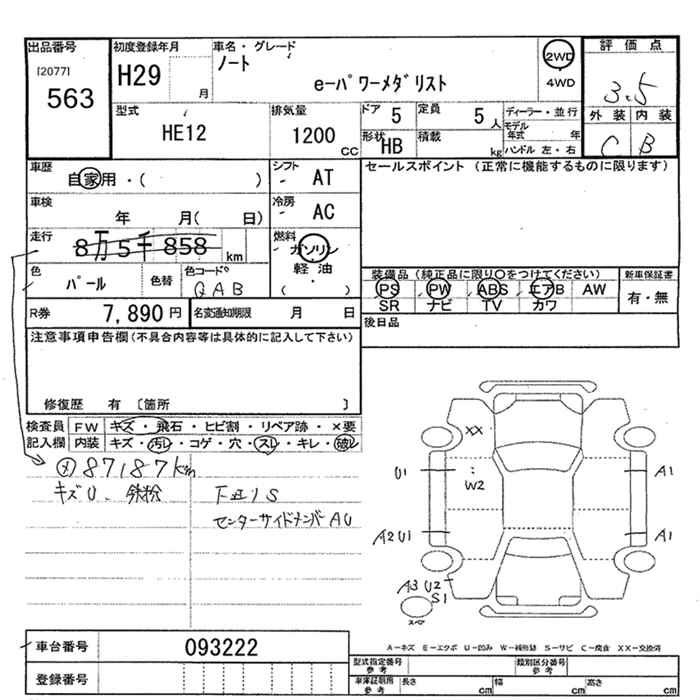 出品番号
[2077]
563
初度登録年月
H29
月
車名・グレード
ノート
e-パワーメダリスト
2WD
4WD
評価点
3.5
外装 内装
C B
型式
HE12
排気量
1200 CC
ドア 5
定員 5 人
形状 HB
積載 kg
ディーラー・並行
モデル年式 年
ハンドル 左・右
車歴
自家用・( )
シフト
AT
セールスポイント (正常に機能するものに限ります)
車検
年 月( 日)
冷房
AC
走行
8万5千858 km
燃料
ガソリン
軽油
( ・ )
色
パール
色替
色コードNo
QAB
装備品 (純正品に限り○をつけてください)
PS PW ABS エアB AW
SR ナビ TV カワ
新車保証書
有・無
R券
7,890 円
名変通知期限 月 日
後日品
注意事項申告欄(不具合内容等は具体的に記入して下さい)
修復歴 有 [箇所 ]
検査員記入欄
FW キズ・飛石・ヒビ割・リペア跡・×要
内装 キズ・汚レ・コゲ・穴・スレ・キレ・破レ
メ 87187km
キズU、鉄粉
下廻りS
センターサイドメンバーAU
XX
U1
W2
A1
A2 U1
A1
A3 U2
S1
スペア
A-キズ E-エクボ U-凹み W-補修跡 S-サビ C-腐食 XX-交換済
車台番号
093222
登録番号
型式指定番号 参考
類別区分番号 参考
車庫証明用 参考
長さ cm
幅 cm
高さ cm